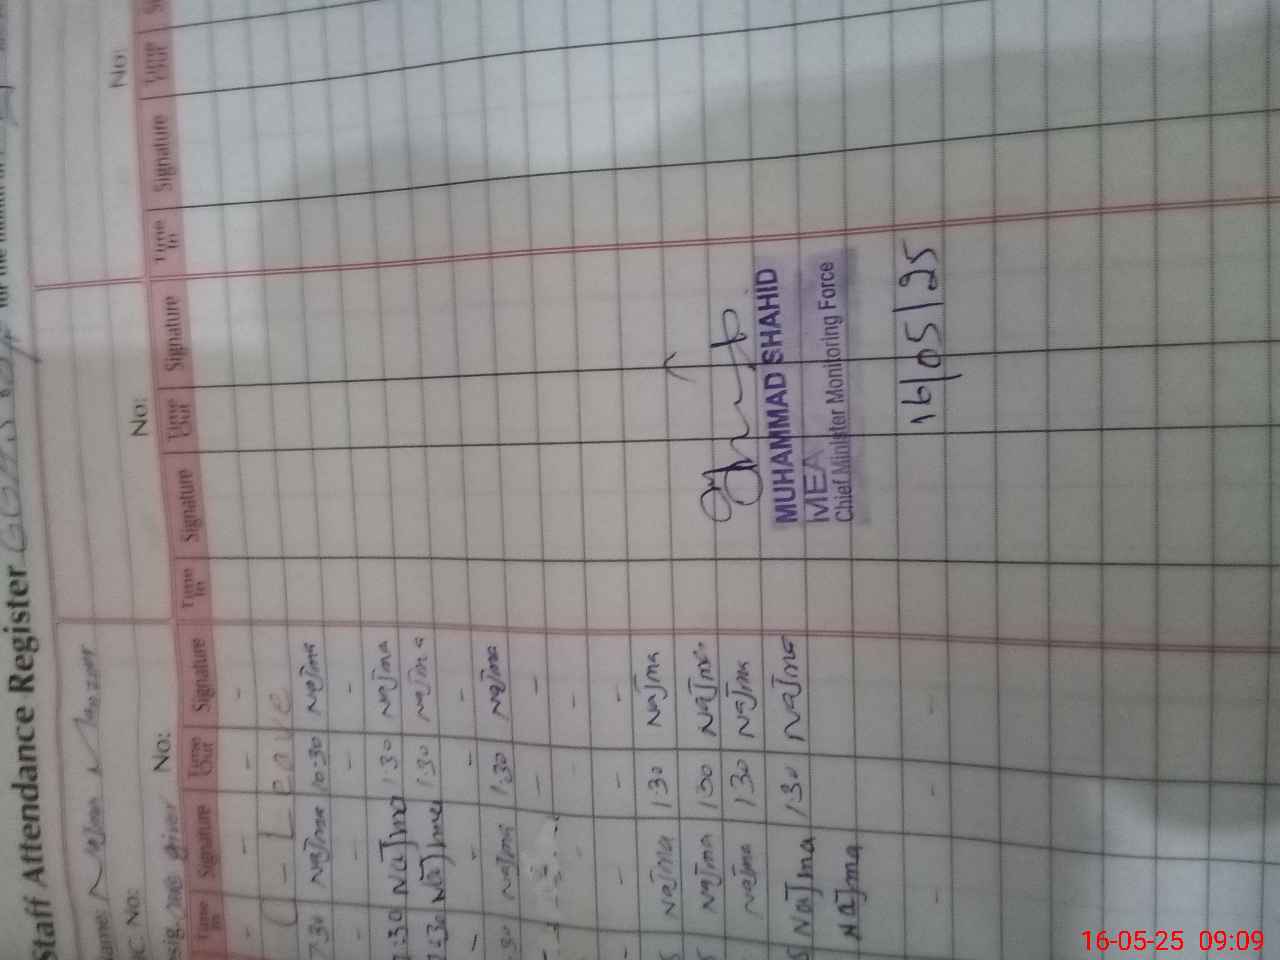 Staff Attendance Register
Name: Najma
No: No: No:
Time In Signature Time Out Signature Time In Signature Time Out Signature Time In Signature Time Out
- - - -
C - Leave
7:30 Najma 10:30 Najma
- - - -
7:30 Najma 1:30 Najma
7:30 Najma 1:30 Najma
- - - -
Najma 1:30 Najma
- - -
- - - -
Najma 130 Najma
Najma 130 Najma
Najma 130 Najma
Najma 130 Najma
Najma
- - -
MUHAMMAD SHAHID
MEA
Chief Minister Monitoring Force
16/05/25
16-05-25 09:09